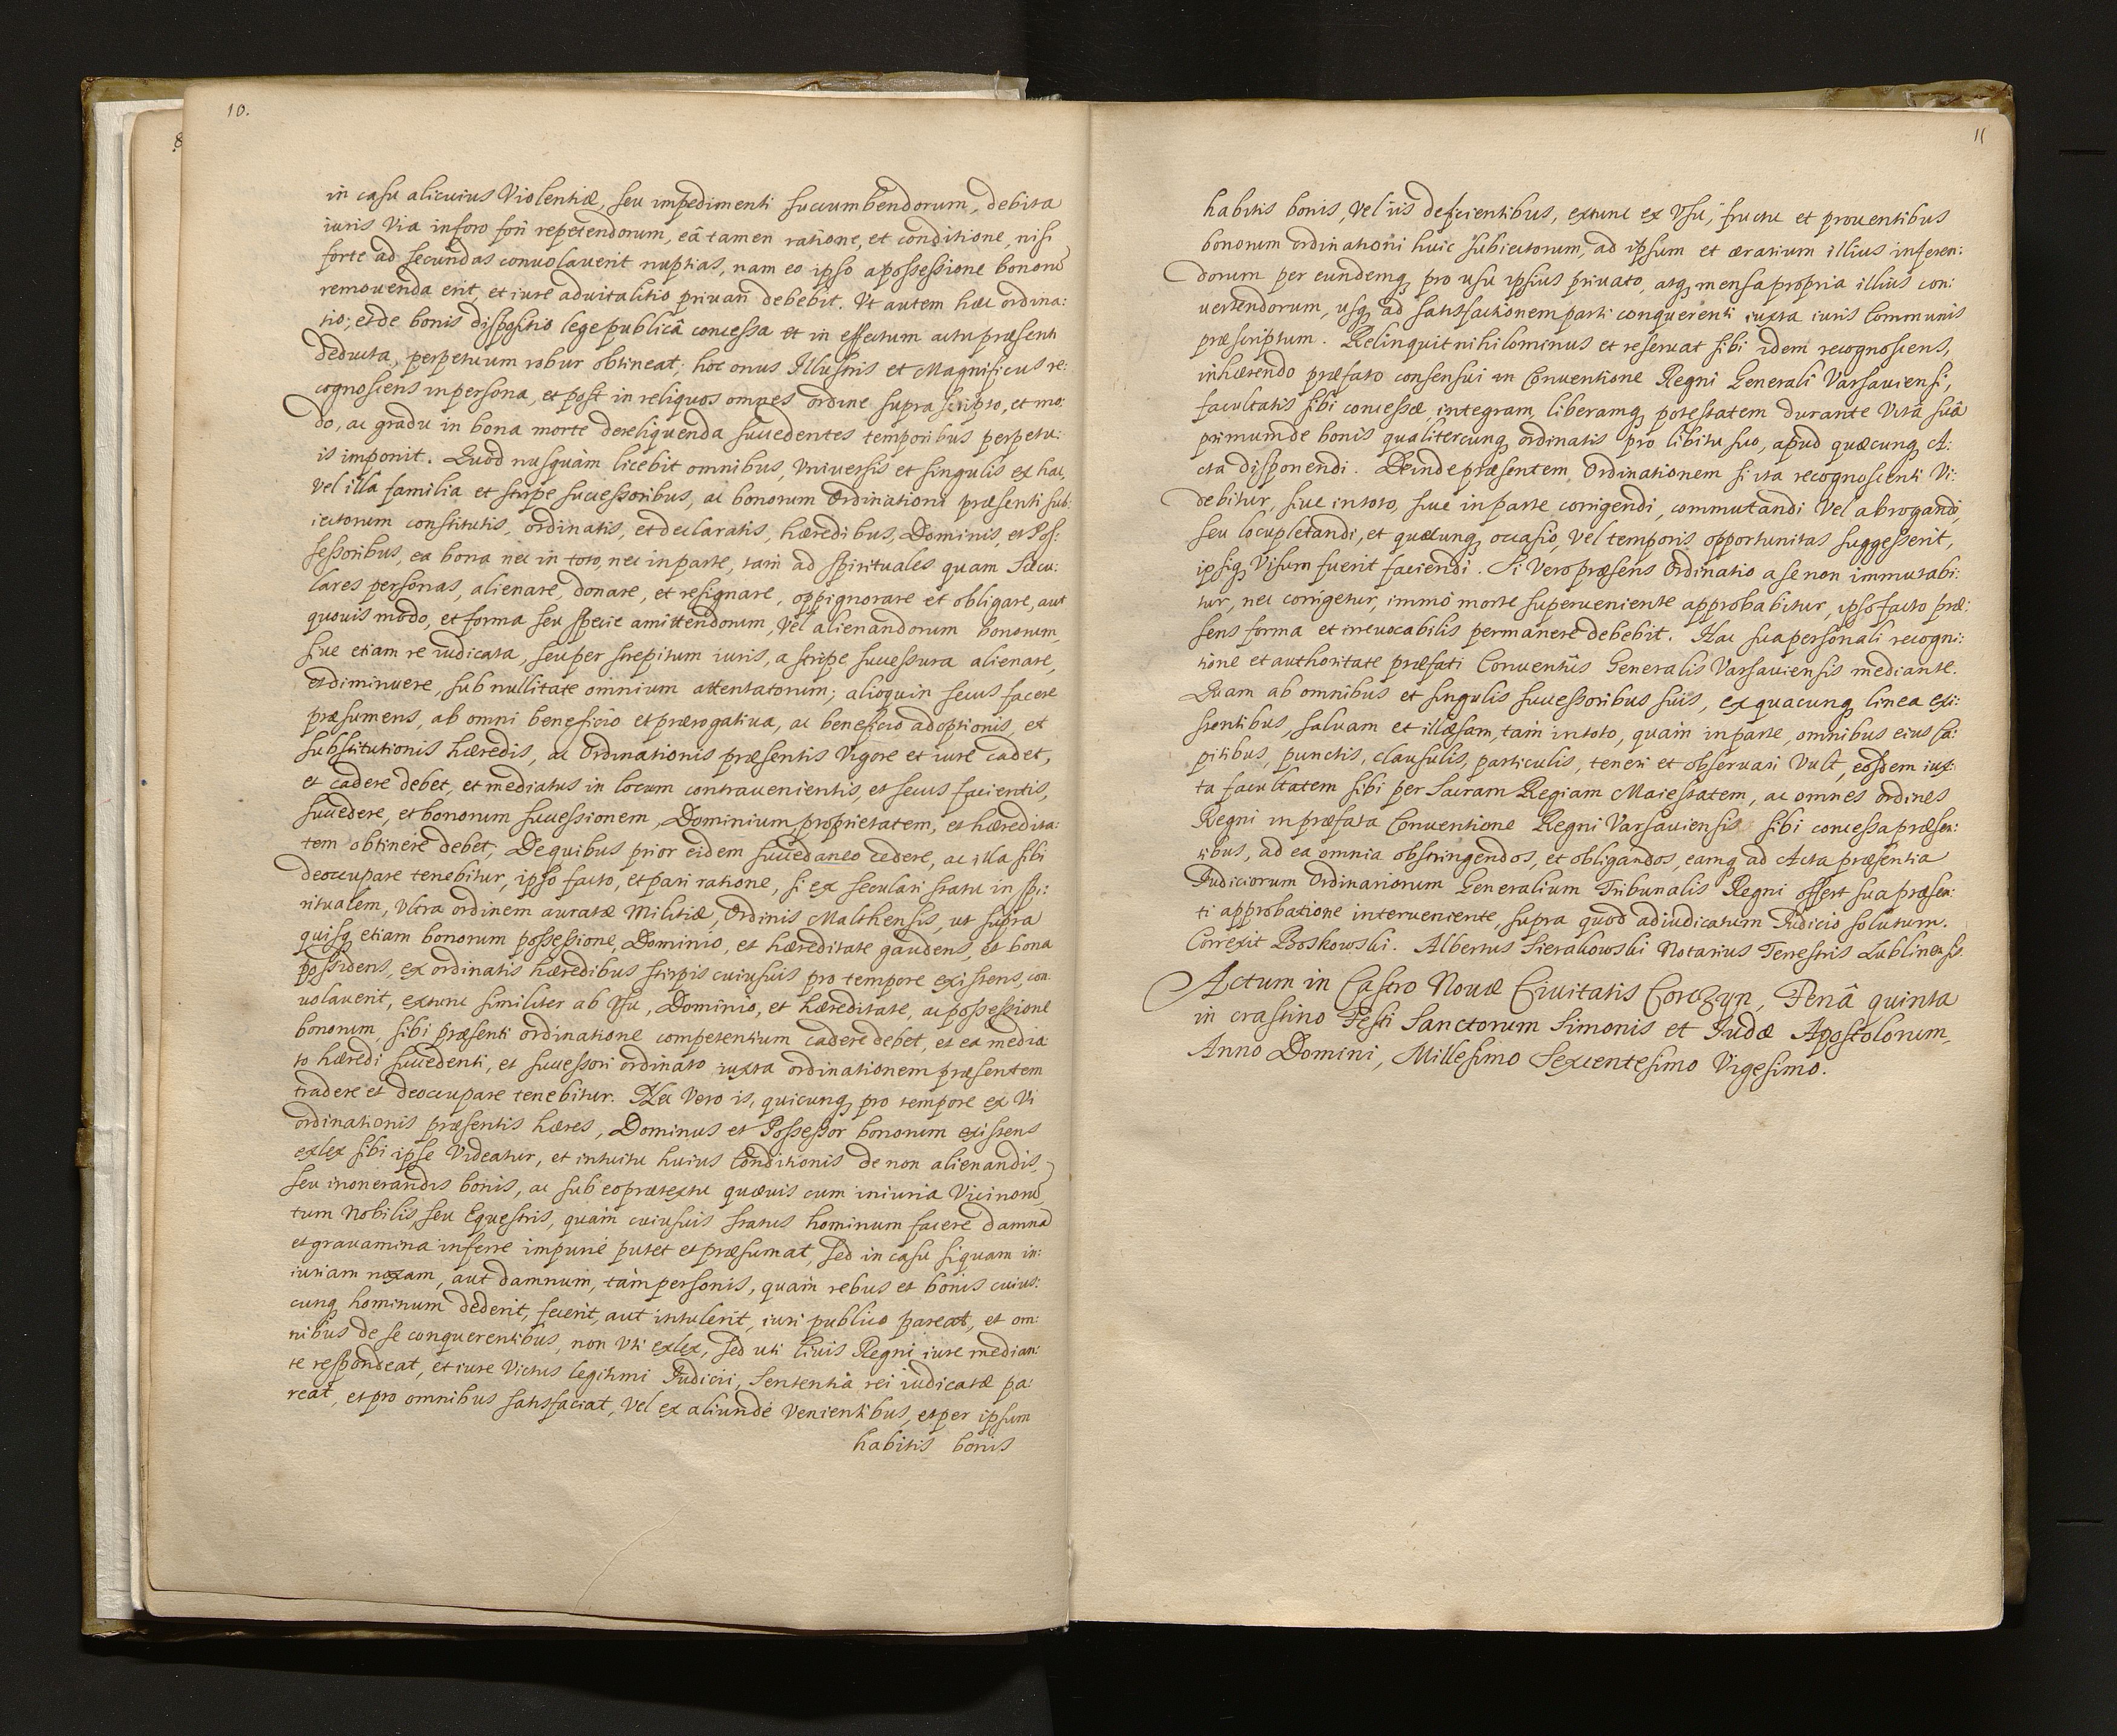 10.
in casu alicuius Violentiæ, seu impedimenti succumbendorum, debita
iuris Via in foro fori repetendorum, eâ tamen ratione, et conditione, nisi
forte ad secundas conuolauerit nuptias, nam eo ipso a possessione bonorũ
remouenda erit, et iure aduitalitio priuari debebit. Vt autem hæc ordina:
tio, et de bonis dispositio lege publicâ concessa et in effectum actu præsenti
deducta, perpetuum robur obtineat, hoc onus Illustris et Magnificus re:
cognoscens in persona, et post in reliquos omnes ordine supra scripto, et mo:
do, ac gradu in bona morte derelinquenda succedentes temporibus perpetu:
is imponit. Quod nusquàm licebit omnibus, Vniuersis et singulis ex hac,
vel illa familia et stirpe successoribus, ac bonorum ordinationi præsenti sub:
iectorum constitutis, ordinatis, et declaratis, hæredibus, Dominis, et Pos:
sessoribus, ea bona nec in toto, nec in parte, tam ad Spirituales quam Sæcu:
lares personas, alienare, donare, et resignare, oppignorare et obligare, aut
quouis modo, et forma seu specie amittendorum, Vel alienandorum bonorum,
siue etiam re iudicata, seu per strepitum iuris, a stirpe successura alienare,
et diminuere, sub nullitate omnium attentatorum; alioquin secus facere
præsumens, ab omni beneficio et prærogatiua, ac beneficio adoptionis, et
substitutionis hæredis, ac ordinationis præsentis Vigore et iure cadet,
et cadere debet, et mediatus in locum contrauenientis, et secus facientis,
succedere, et bonorum successionem, Dominium, proprietatem, et hæredita:
tem obtinere debet, De quibus prior eidem succedaneo cedere, ac illa sibi
deoccupare tenebitur, ipso facto, et pari ratione, si ex seculari statu in spi:
ritualem, Vltra ordinem auratæ Militiæ, Ordinis Malthensis, ut supra
quisq etiam bonorum possessione, Dominio, et hæreditate gaudens, et bona
possidens, ex ordinatis hæredibus stirpis cuiusuis pro tempore existens, con
uolauerit, extunc similiter ab Vsu, Dominio, et hæreditate, ac possessione
bonorum, sibi præsenti ordinatione competentium cadere debet, et ea media
to hæredi succedenti, et successori ordinato iuxta ordinationem præsentem
tradere et deoccupare tenebitur. Nec Vero is, quicunq pro tempore ex Vi
ordinationis præsentis hæres, Dominus et Possessor bonorum existens
exlex sibi ipse Videatur, et intuitu huius Conditionis de non alienandis,
seu inonerandis bonis, ac sub eo prætextu quæuis cum iniuria Vicinorũ,
tum Nobilis, seu Equestris, quàm cuiusuis status hominum facere damna
et grauamina inferre impunè putet et præsumat, sed in casu si quam in:
iuriam noxam, aut damnum, tàm personis, quàm rebus et bonis cuius:
cunq hominum dederit, fecerit, aut intulerit, iuri publico pareat, et om:
nibus de se conquerentibus, non Vti exlex, sed uti Ciuis Regni iure median:
te respondeat, et iure Victus legitimi Iudicii, Sententia rei iudicatæ pa:
reat, et pro omnibus satisfaciat, Vel ex aliundè Venientibus, et per ipsum
habitis bonis
11
habitis bonis, Vel iis deficientibus, extunc ex Vsu, fructu et prouentibus
bonorum ordinationi huic subiectorum, ad ipsum et ærarium illius inferen:
dorum per eundemq pro usu ipsius priuato, atq mensa propria illius con:
uertendorum, usq ad satisfactionem parti conquerenti iuxta iuris Communis
præscriptum. Relinquit nihilominus et reseruat sibi idem recognoscens,
inhærendo præfato consensui in Conuentione Regni Generali Varsauiensi,
facultatis sibi concessæ, integram, liberamq potestatem durante Vitâ suâ
primum de bonis qualitercunq ordinatis pro libitu suo, apud quæcunq A:
cta disponendi. Deinde præsentem Ordinationem si ita recognoscenti Vi:
debitur, siue in toto, siue in parte corrigendi, commutandi Vel abrogandi,
seu locupletandi, et quæcunq occasio, Vel temporis opportunitas suggesserit,
ipsiq Visum fuerit faciendi. Si Vero præsens Ordinatio a se non immutabi:
tur, nec corrigetur, immò morte superueniente approbabitur, ipso facto præ:
sens forma et irreuocabilis permanere debebit. Hac sua personali recogni:
tione et authoritate præfati Conuentûs Generalis Varsauiensis mediante.
Quam ab omnibus et singulis successoribus suis, ex quacunq linea exi:
stentibus, saluam et illæsam, tàm in toto, quàm in parte, omnibus eius ca:
pitibus, punctis, clausulis, particulis, teneri et obseruari Vult, eosdem iux:
ta facultatem sibi per Sacram Regiam Maiestatem, ac omnes ordines
Regni in præfata Conuentione Regni Varsauiensis sibi concessa præsen:
tibus, ad ea omnia obstringendos, et obligandos, eamq ad Acta præsentia
Iudiciorum Ordinariorum Generalium Tribunalis Regni offert sua præsen:
ti approbatione interueniente, supra quod adiudicatum Iudicio solutum.
Correxit Boskowski. Albertus Sierakowski Notarius Terrestris Lublinensis.
Actum in Castro Nouæ Ciuitatis Corczyn, Feriâ quinta
in crastino Festi Sanctorum Simonis et Iudæ Apostolorum,
Anno Domini, Millesimo Sexcentesimo Vigesimo.